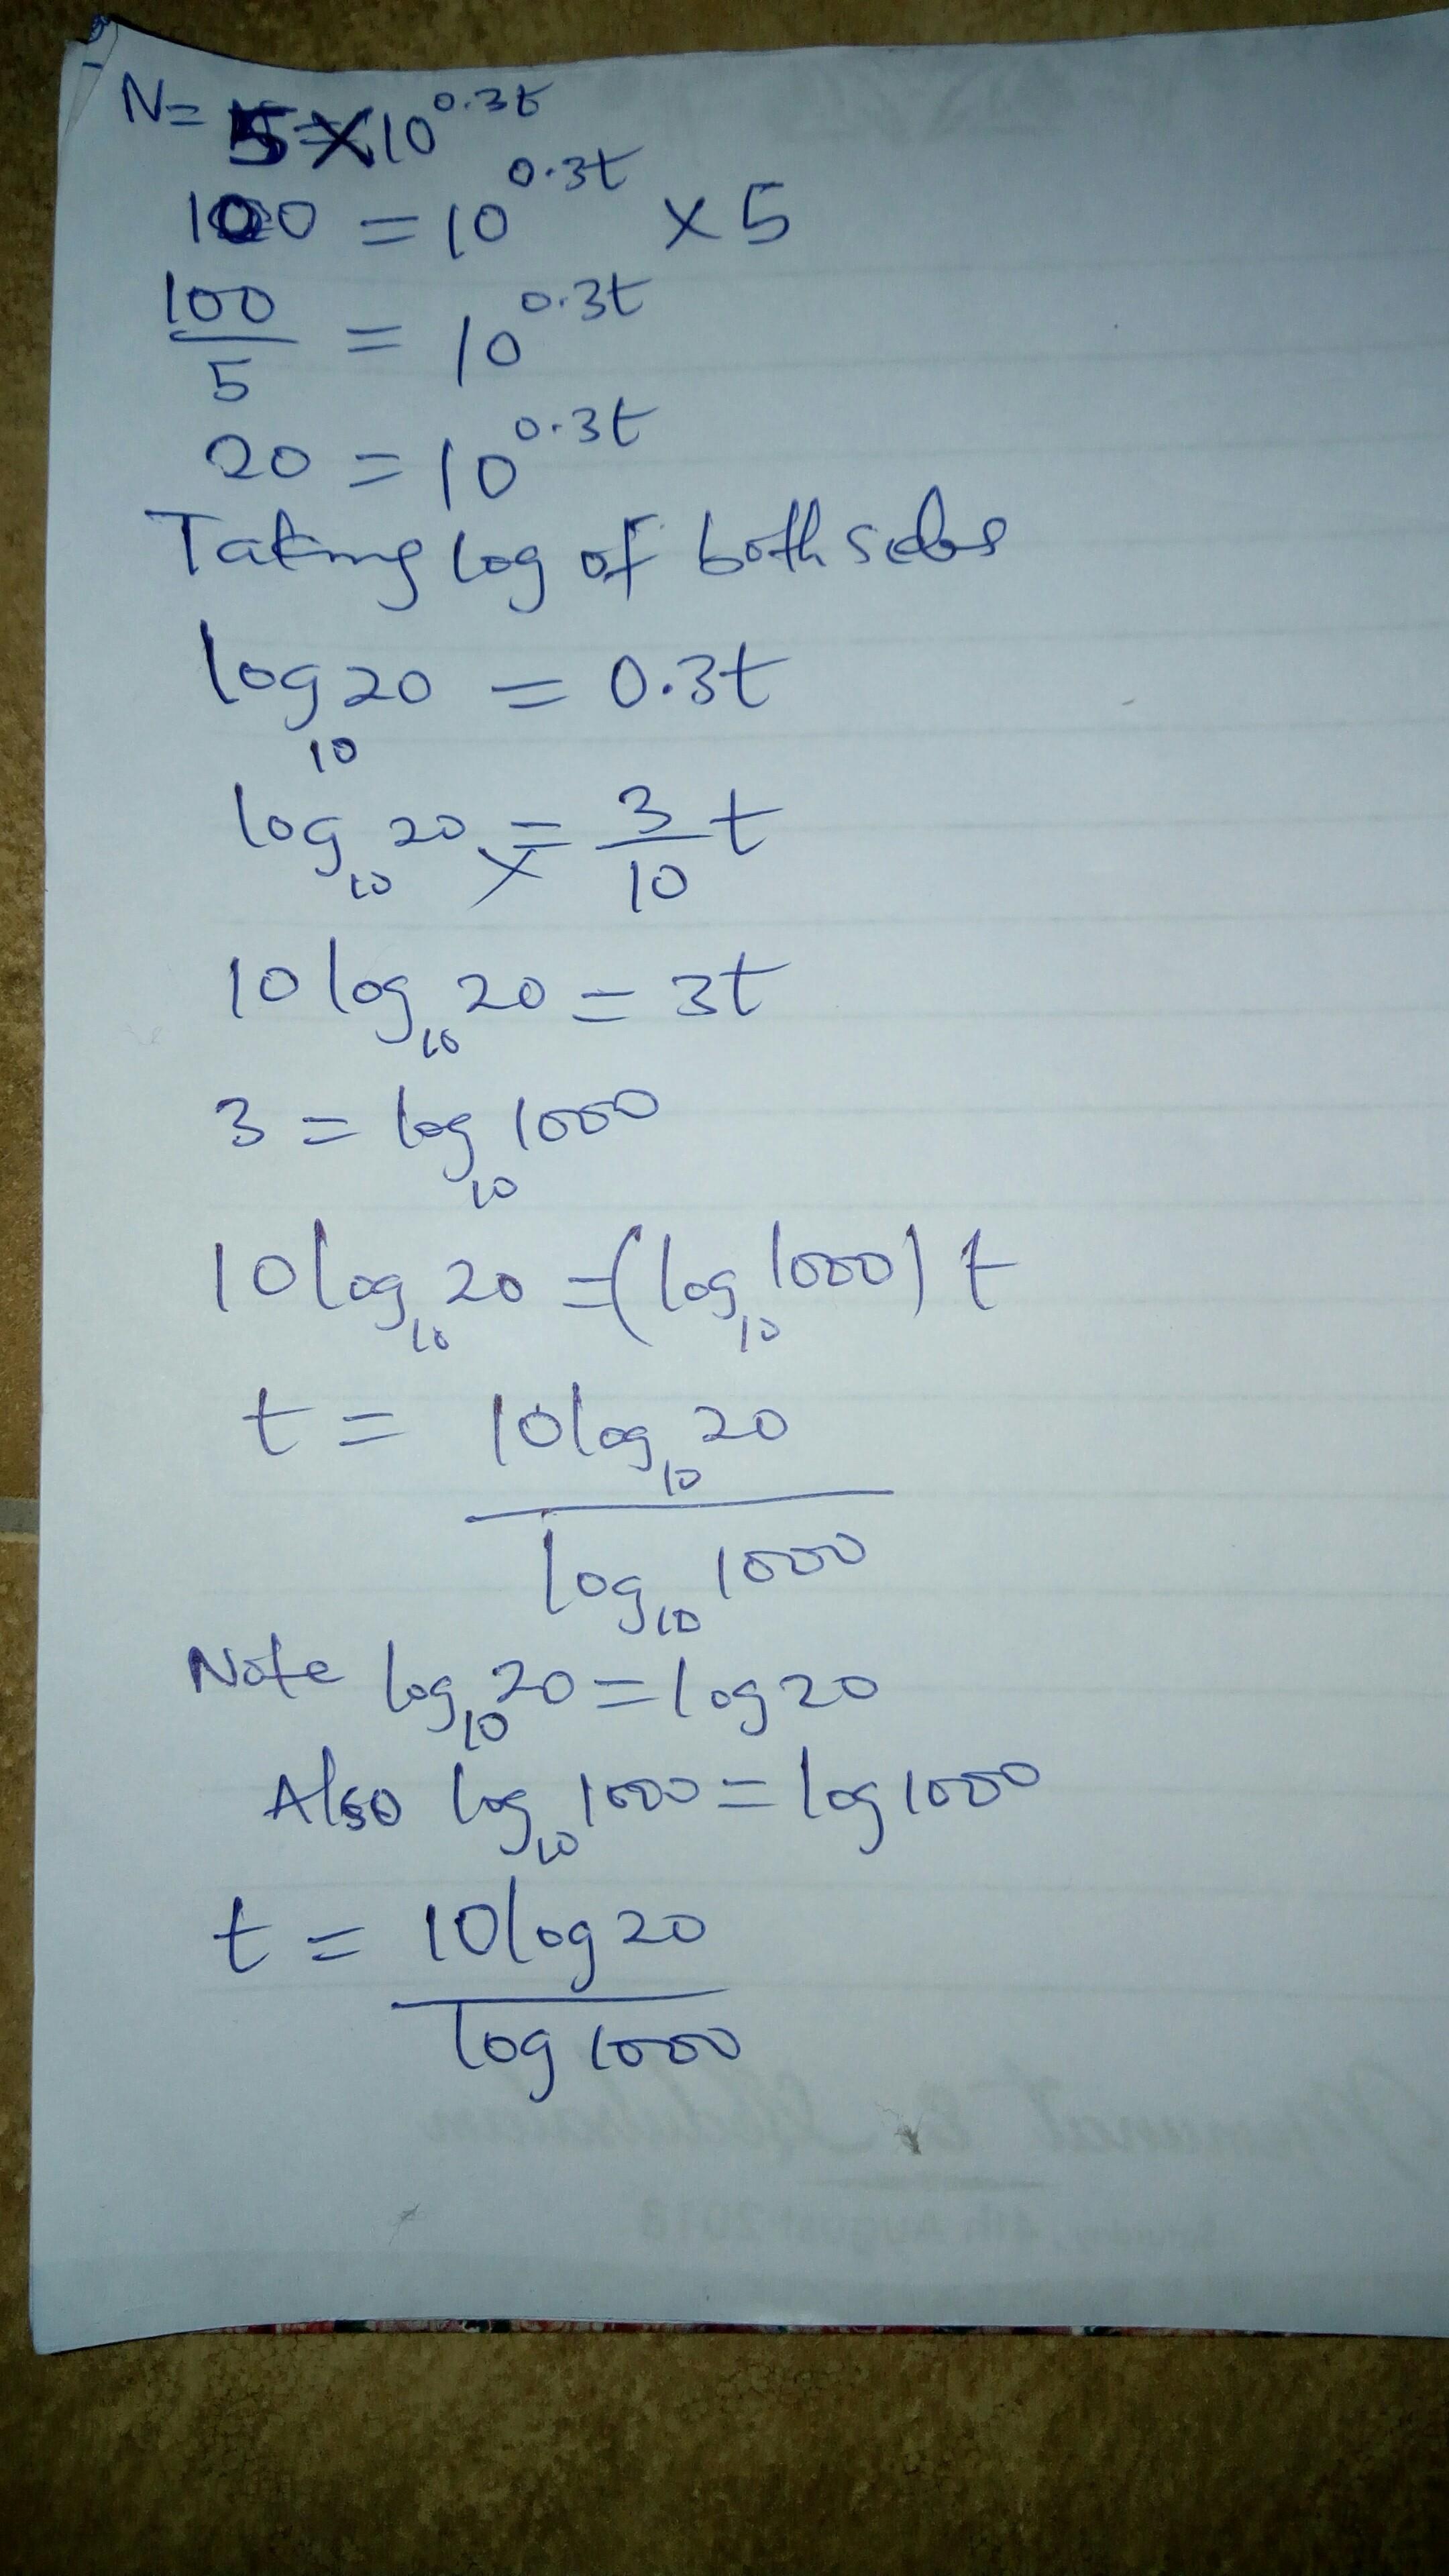 N= 5×10^0.3t
100 = 10^0.3t × 5
100/5 = 10^0.3t
20 = 10^0.3t
Taking log of both sides
log₁₀20 = 0.3t
log₁₀20 = 3/10 t
10log₁₀20 = 3t
3 = log₁₀1000
10log₁₀20 = (log₁₀1000) t
t = 10log₁₀20 / log₁₀1000
Note log₁₀20 = log20
Also log₁₀1000 = log1000
t = 10log20 / log1000
August 2018